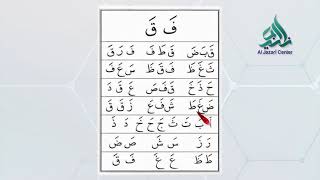 Al Jazari Center
فَ قَ
قَ بَ ضَ قَ طَ فَ فَ رَ قَ
فَ قَ طَ سَ عَ فَ
قَ فَ صَ عَ قَ دَ
شَ فَ عَ زَ قَ قَ
أَ بَ تَ ثَ جَ حَ خَ دَ ذَ
رَ زَ سَ شَ صَ ضَ
طَ ظَ عَ غَ فَ قَ